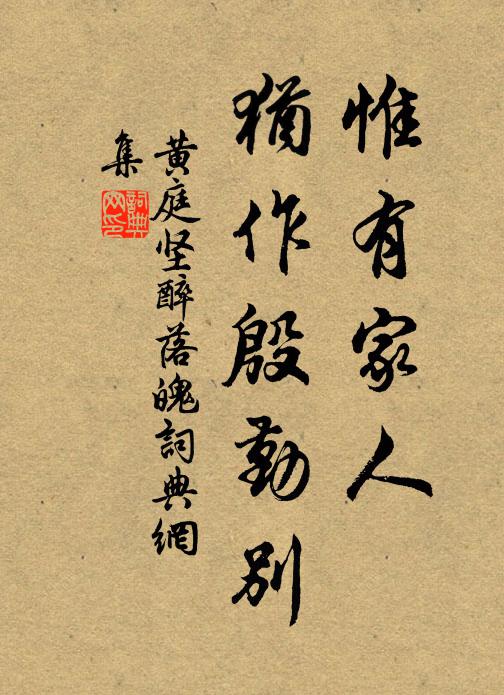 惟有家人
猶作殷勤別
黄庭坚醉落魄詞典網
集
詞典網印